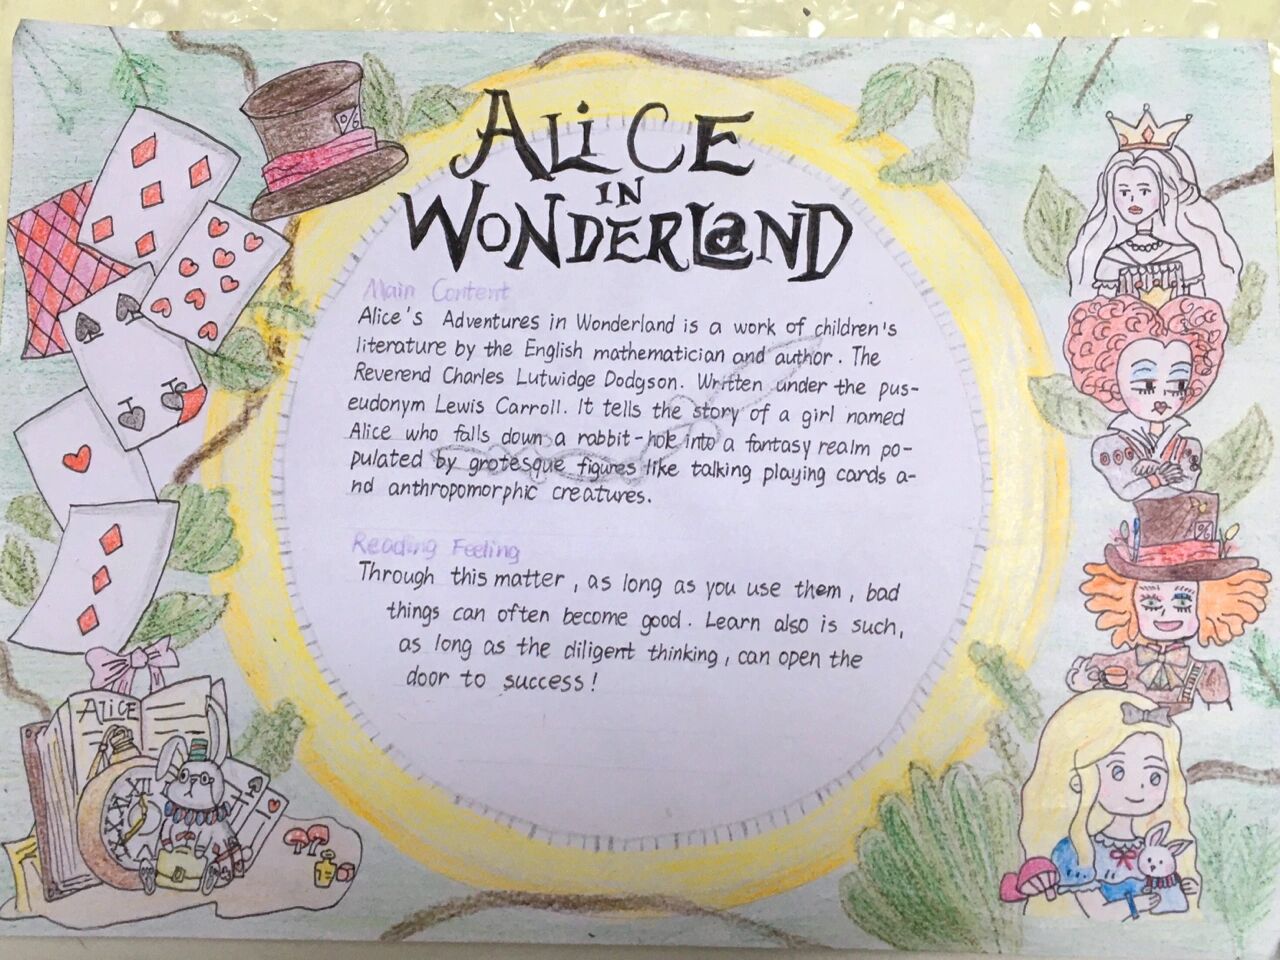 ALiCE
IN
WONDERLAND
Main Content
Alice's Adventures in Wonderland is a work of children's
literature by the English mathematician and author. The
Reverend Charles Lutwidge Dodgson. Written under the pus-
eudonym Lewis Carroll. It tells the story of a girl named
Alice who falls down a rabbit-hole into a fantasy realm po-
pulated by grotesque figures like talking playing cards a-
nd anthropomorphic creatures.
Reading Feeling
Through this matter, as long as you use them, bad
things can often become good. Learn also is such,
as long as the diligent thinking, can open the
door to success!
ALICE